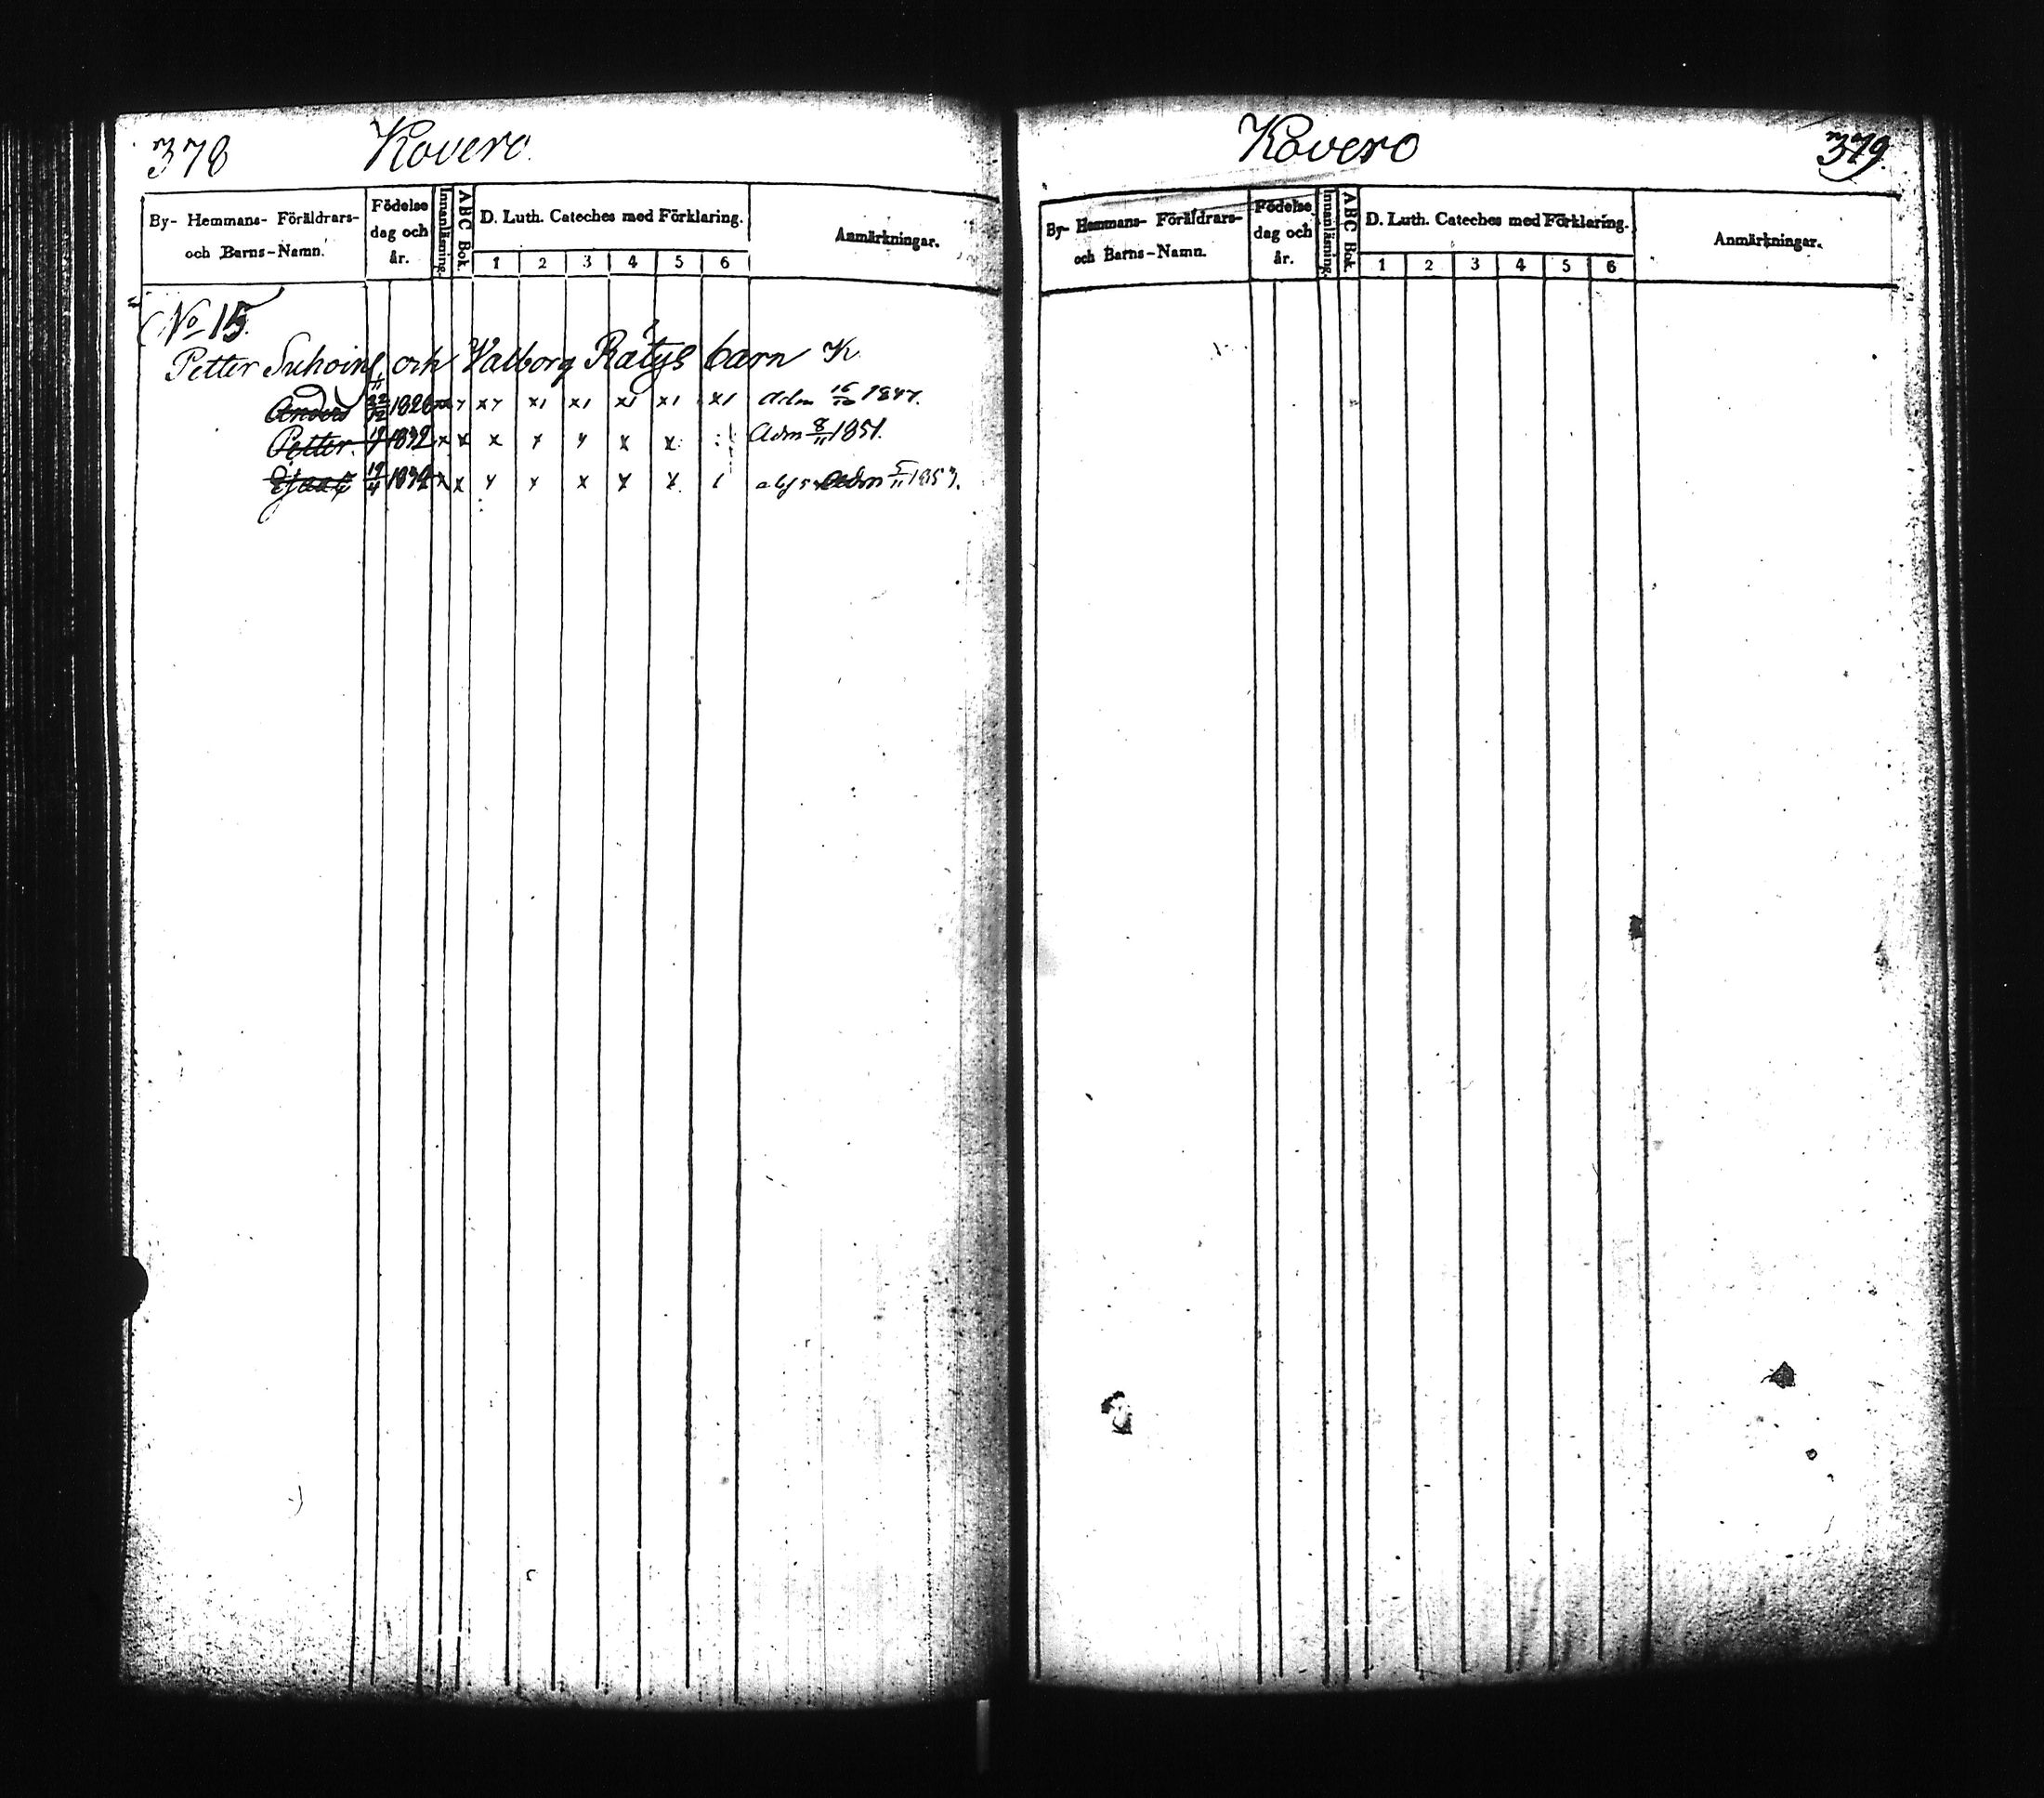 378 Kovero.
By- Hemmans- Föräldrars- och Barns-Namn. Födelse dag och år. Innanläsning. ABC Bok. D. Luth. Cateches med Förklaring. Anmärkningar.
1 2 3 4 5 6
No 15.
Petter Suhoins och Valborg Rätys barn K
Anders 22/12 1826 x y xy x1 x1 x1 x1 x1 adm 16/10 1847.
Petter 19/7 1832 x x x x y x x Adm 8/11 1851.
19/4 x x y x x y x 1 Adm 5/11 1857.
Kovero 379.
By- Hemmans- Föräldrars- och Barns-Namn. Födelse dag och år. Innanläsning. ABC Bok. D. Luth. Cateches med Förklaring. Anmärkningar.
1 2 3 4 5 6